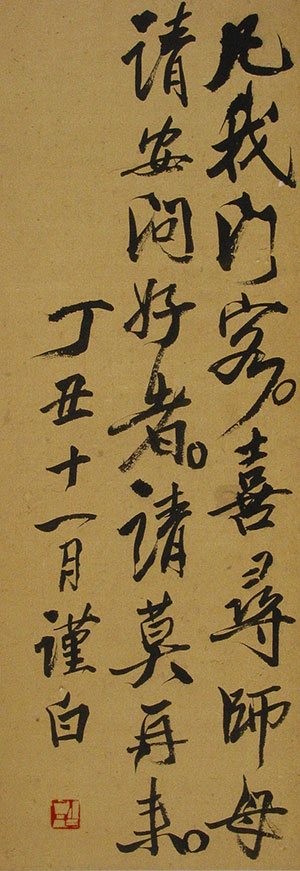 凡我门客。喜尋師母
請安问好者。請莫再来。
丁丑十一月謹白